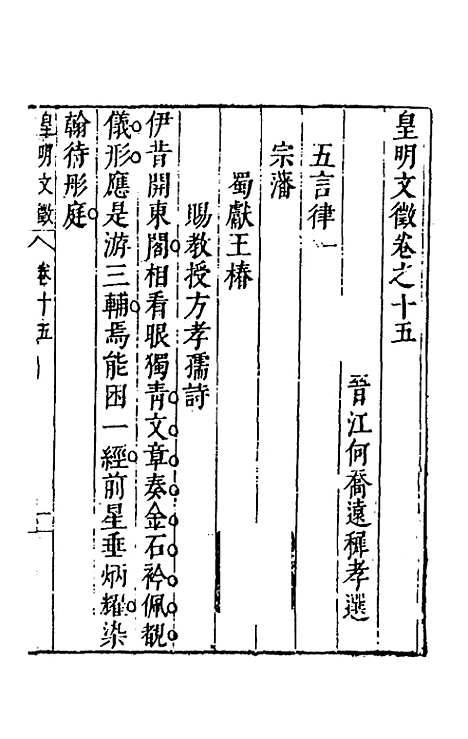 皇明文徵卷之十五
晉江何喬遠穉孝選
五言律一
宗藩
蜀獻王椿
賜教授方孝孺詩
伊昔開東閣相看眼獨青文章奏金石衿佩覩
儀形應是游三輔焉能困一經前星垂炳燿染
翰待彤庭
皇明文徵 卷十五 一